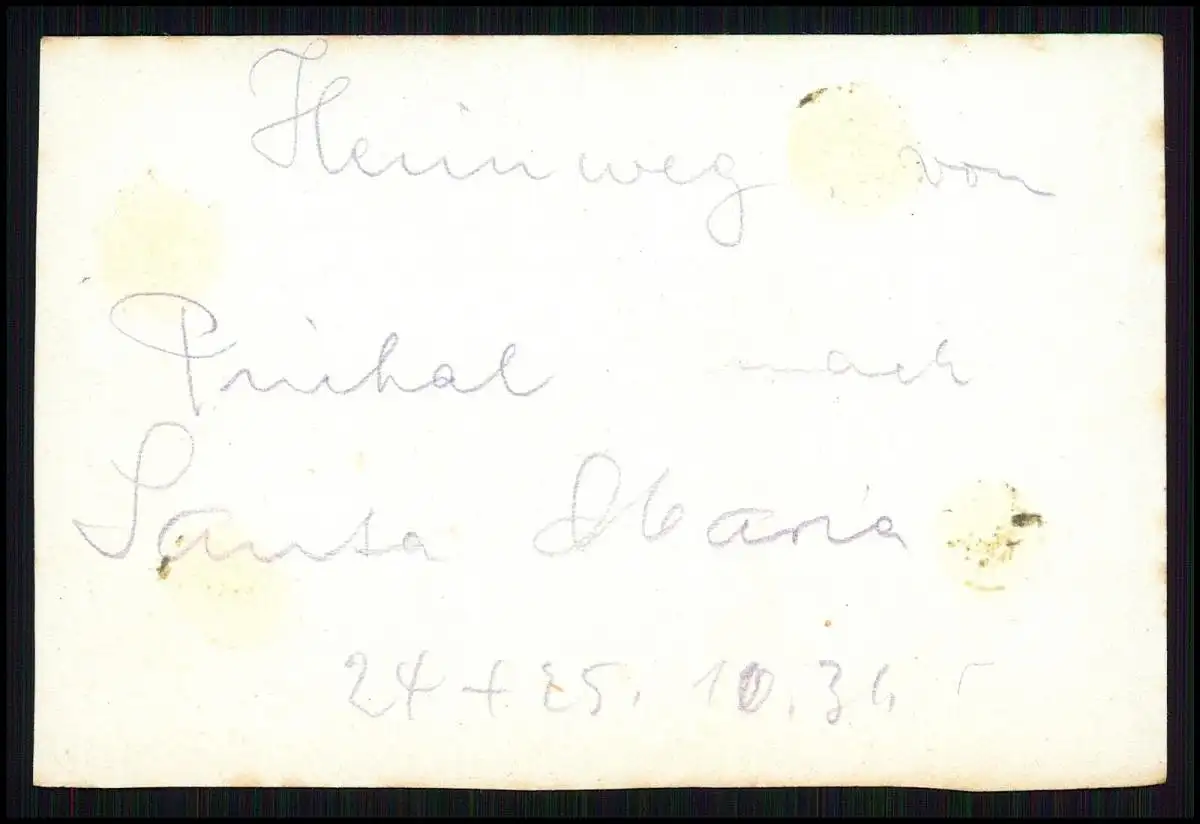 Heimweg von
Prichal nach
Santa Maria
24 + 25. 10. 36